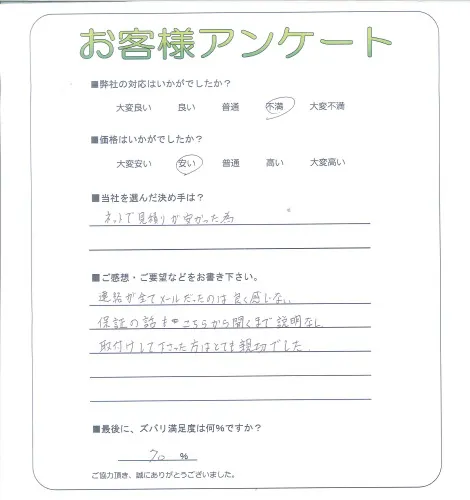 お客様アンケート
■弊社の対応はいかがでしたか？
大変良い 良い 普通 不満 大変不満
■価格はいかがでしたか？
大変安い 安い 普通 高い 大変高い
■当社を選んだ決め手は？
ネットで見積りが安かった為
■ご感想・ご要望などをお書き下さい。
連絡が全てメールだったのは良く感じない
保証の話も こちらから聞くまで説明なし
取付けして下さった方はとても親切でした
■最後に、ズバリ満足度は何%ですか？
70 %
ご協力頂き、誠にありがとうございました。